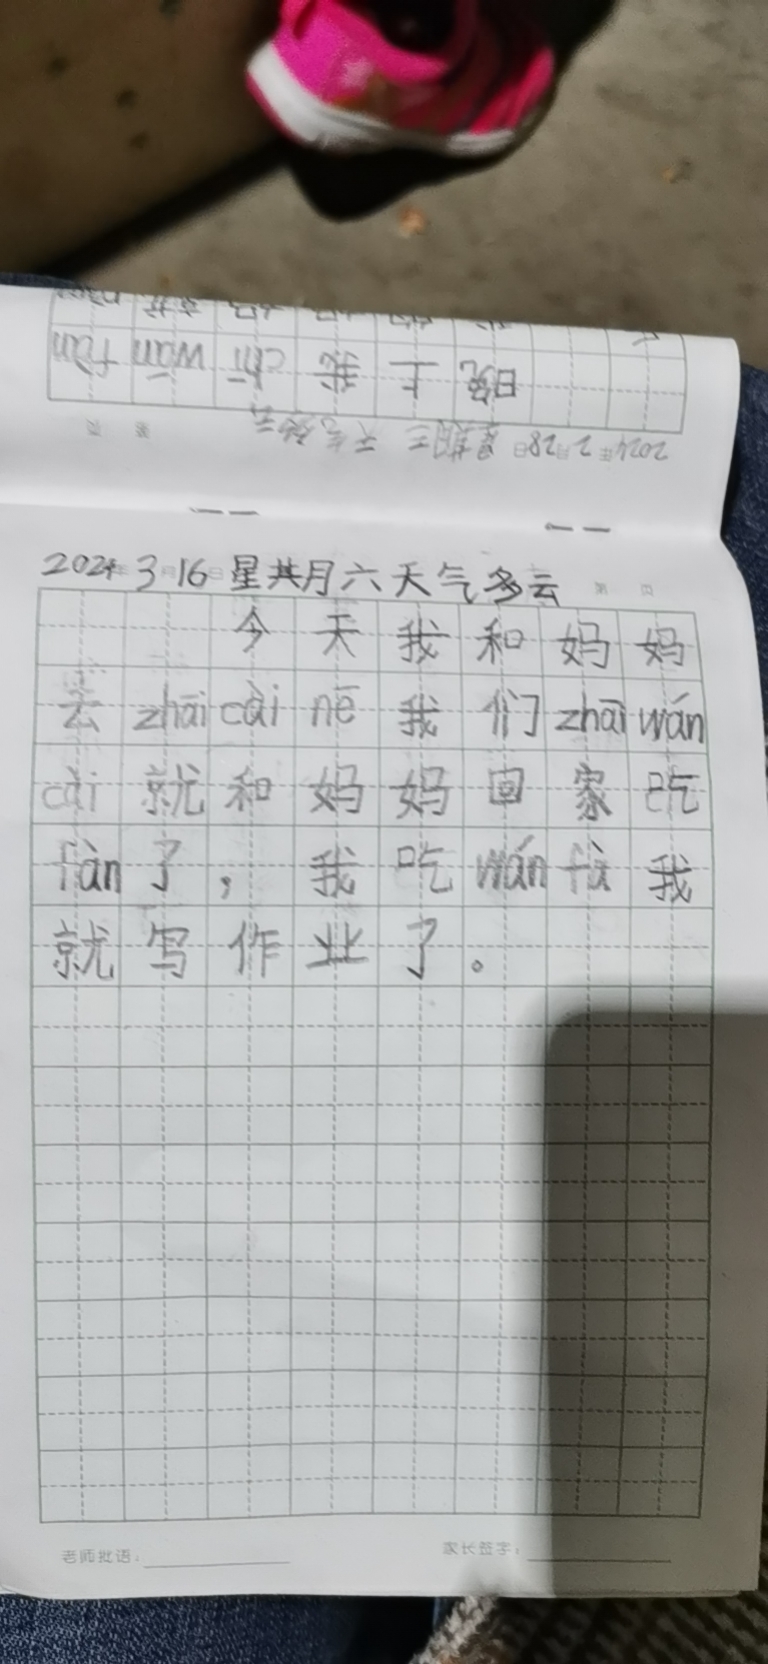 2024年2月28日 星期三 天气多云
晚上我chī wán fàn
2024年3月16日 星期六 天气多云
今天我和妈妈
去zhāi cài nē我们zhāi wán
cài就和妈妈回家吃
fàn了，我吃wán fà我
就写作业了。
老师批语：
家长签字：